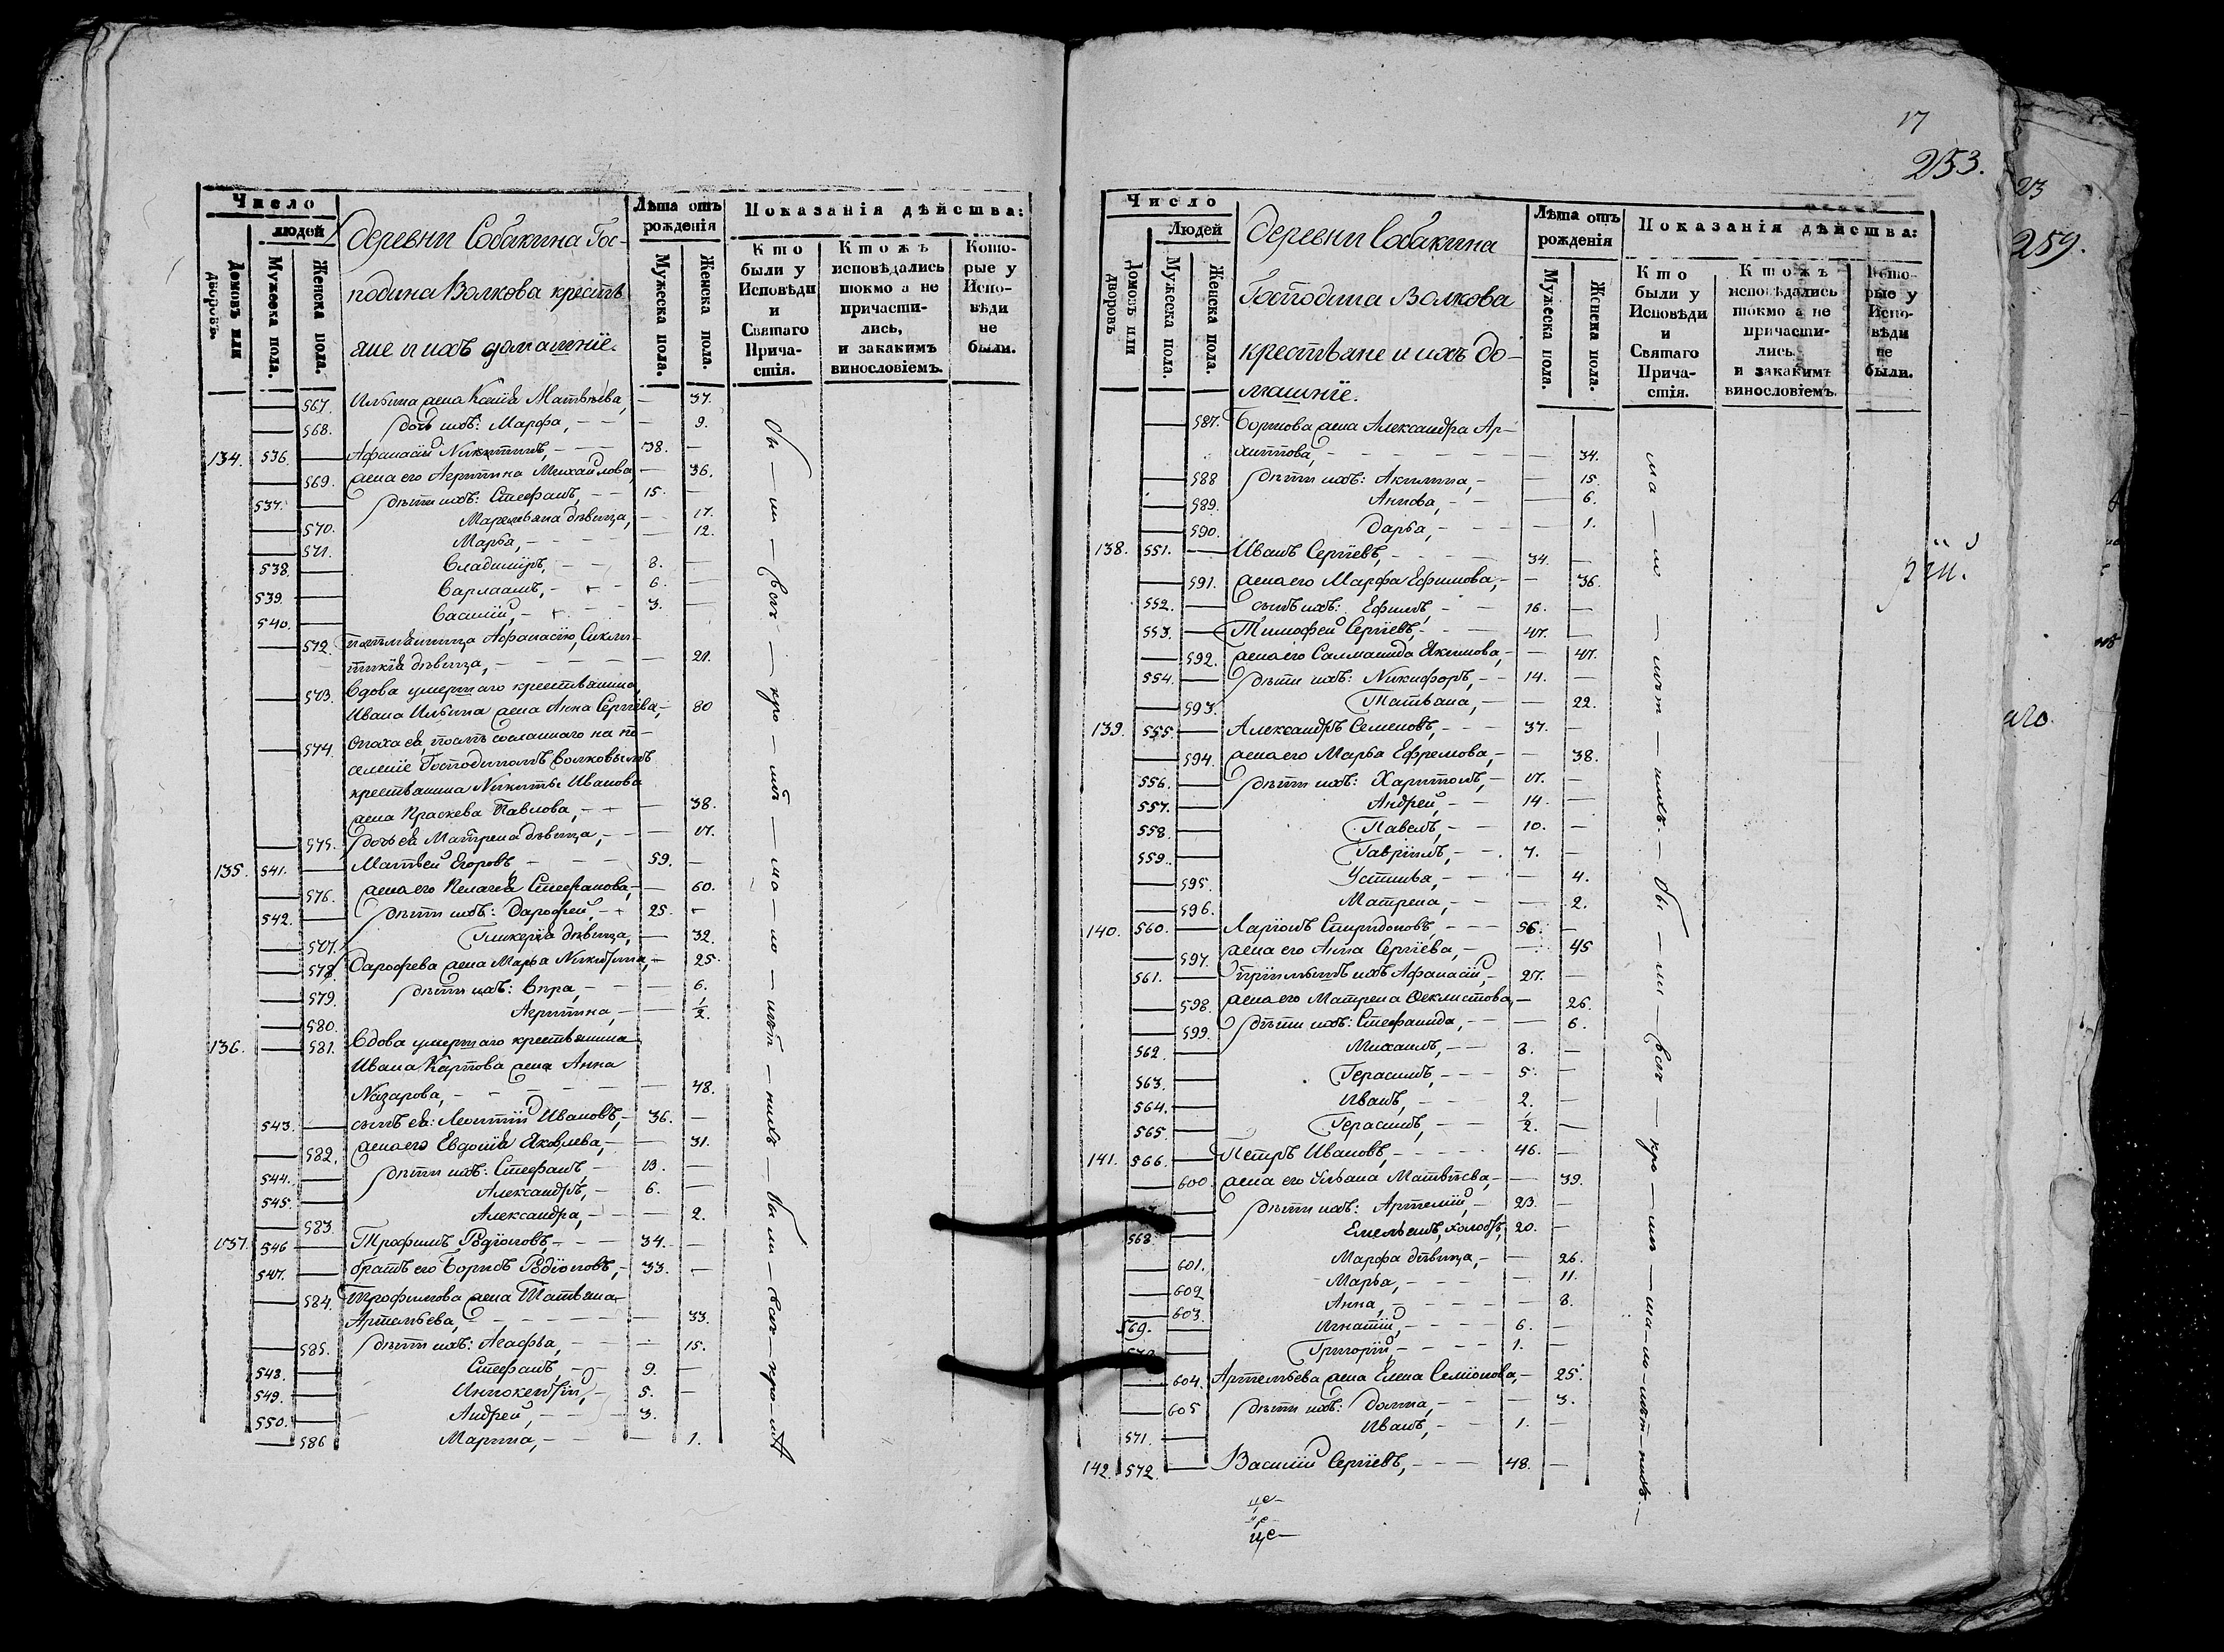 Число
людей
Домовъ или дворовъ.
Мужеска пола.
Женска пола.
деревни Собакина Гос-
подина Волкова крестья
яне и ихъ домашніе.
Лѣта отъ рожденія
Мужеска пола.
Женска пола.
Показанія дѣйства:
Кто были у Исповѣди и Святаго Причастія.
Ктожъ исповѣдались токмо а не причастились, и закакимъ винословіемъ.
Которые у Исповѣди не были.
567. Ильина жена Ксенія Матвѣева, — 37.
568. дочь ихъ: Марфа, — 9.
134. 536. Афанасій Никитинъ, — 38. —
569. жена его Агрипина Михайлова, — 36.
537. дѣти ихъ: Стефанъ, — 15. —
570. Маремьяна дѣвица, — 17.
571. Марья, — 12.
538. Владимиръ, — 8. —
539. Варлаамъ, — 6. —
540. Василій, — 3. —
572. племянница Афанасію, Сикли-
тикія дѣвица, — 21.
573. Вдова умершаго крестьянина
Ивана Ильина жена Анна Сергіева, — 80
574. Сноха ея, посл сосланнаго на по-
селеніе Господиномъ Волковымъ
крестьянина Никиты Иванова
жена Праскева Павлова, — 38.
575. дочь ея Матрена дѣвица, — 17.
135. 541. Матвей Егоровъ, — 59. —
576. жена его Пелагея Стефанова, — 60.
542. дѣти ихъ: Дарофей, — 25. —
577. Гликерія дѣвица, — 32.
578. Дарофева жена Марья Никитина, — 25.
579. дѣти ихъ: Вѣра, — 6.
580. Агрипина, — 1/2.
136. 581. Вдова умершаго крестьянина
Ивана Карпова жена Анна
Назарова, — 48.
543. сынъ ея: Леонтій Ивановъ, — 36. —
582. жена его Евдокія Яковлева, — 31.
544. дѣти ихъ: Стефанъ, — 13. —
545. Александръ, — 6. —
583. Александра, — 2.
137. 546 Трофимъ Родіоновъ, — 34. —
547. братъ его Борисъ Родіоновъ, — 33. —
584. Трофимова жена Татьяна
Артемьева, — 33.
585. дѣти ихъ: Агафья, — 15.
548. Стефанъ, — 9. —
549. Иннокентій, — 5. —
550. Андрей, — 3.
586 Марина, — 1.
бы — ли — всѣ — кро — мѣ — ма — ло — лѣт — нихъ — были — всѣ — кро — мѣ
17
253.
Число
Людей
Домовъ или дворовъ
Мужеска пола.
Женска пола.
деревни Собакина
Господина Волкова
крестьяне и ихъ до-
машніе.
Лѣта отъ рожденія
Мужеска пола.
Женска пола.
Показанія дѣйства:
Кто были у Исповѣди и Святаго Причастія.
Ктожъ исповѣдались токмо а не причастились. и закакимъ винословіемъ.
Которые у Исповѣди не были.
587. Борисова жена Александра Ар-
хипова, — 34.
588 дѣти ихъ: Акилина, — 15.
589. Анисья, — 6.
590. Дарья, — 1.
138. 551. Иванъ Сергіевъ, — 34. —
591. жена его Марфа Ефимова, — 36.
552. сынъ ихъ: Ефимъ, — 16. —
553. Тимофей Сергіевъ, — 47. —
592. жена его Саламанида Якимова, — 47.
554. дѣти ихъ: Никифоръ, — 14. —
593. Татьяна, — 22.
139. 555. Александръ Семеновъ, — 37. —
594. жена его Марья Ефремова, — 38.
556. дѣти ихъ: Харитонъ, — 17. —
557. Андрей, — 14. —
558. Павелъ, — 10. —
559. Гавріилъ, — 7. —
595. Устинья, — 4.
596. Матрена, — 2.
140. 560. Ларіонъ Спиридоновъ, — 56. —
597. жена его Анна Сергіева, — 45
561. пріимышъ ихъ Афанасій, — 27. —
598. жена его Матрена Феклистова, — 26.
599. дѣти ихъ: Стефанида, — 6.
562. Михаилъ, — 8. —
563. Герасимъ, — 5. —
564. Иванъ, — 2. —
565. Герасимъ, — 1/2. —
141. 566. Петръ Ивановъ, — 46. —
600. жена его Ульяна Матвѣева, — 39.
дѣти ихъ: Артемій, — 23. —
568 Емельянъ, холостъ, 20. —
601. Марфа дѣвица, — 26.
602 Марья, — 11.
603. Анна, — 8.
569. Игнатій, — 6. —
570 Григорій, — 1. —
604. Артемьева жена Елена Семіонова, — 25.
605 дѣти ихъ: Домна, — 3.
571. Иванъ, — 1. —
142. 572. Василій Сергіевъ, — 48. —
ма — ло — лѣт — нихъ. — бы — ли всѣ — кро — мѣ — ма — ло — лѣт — нихъ. —
23
259.